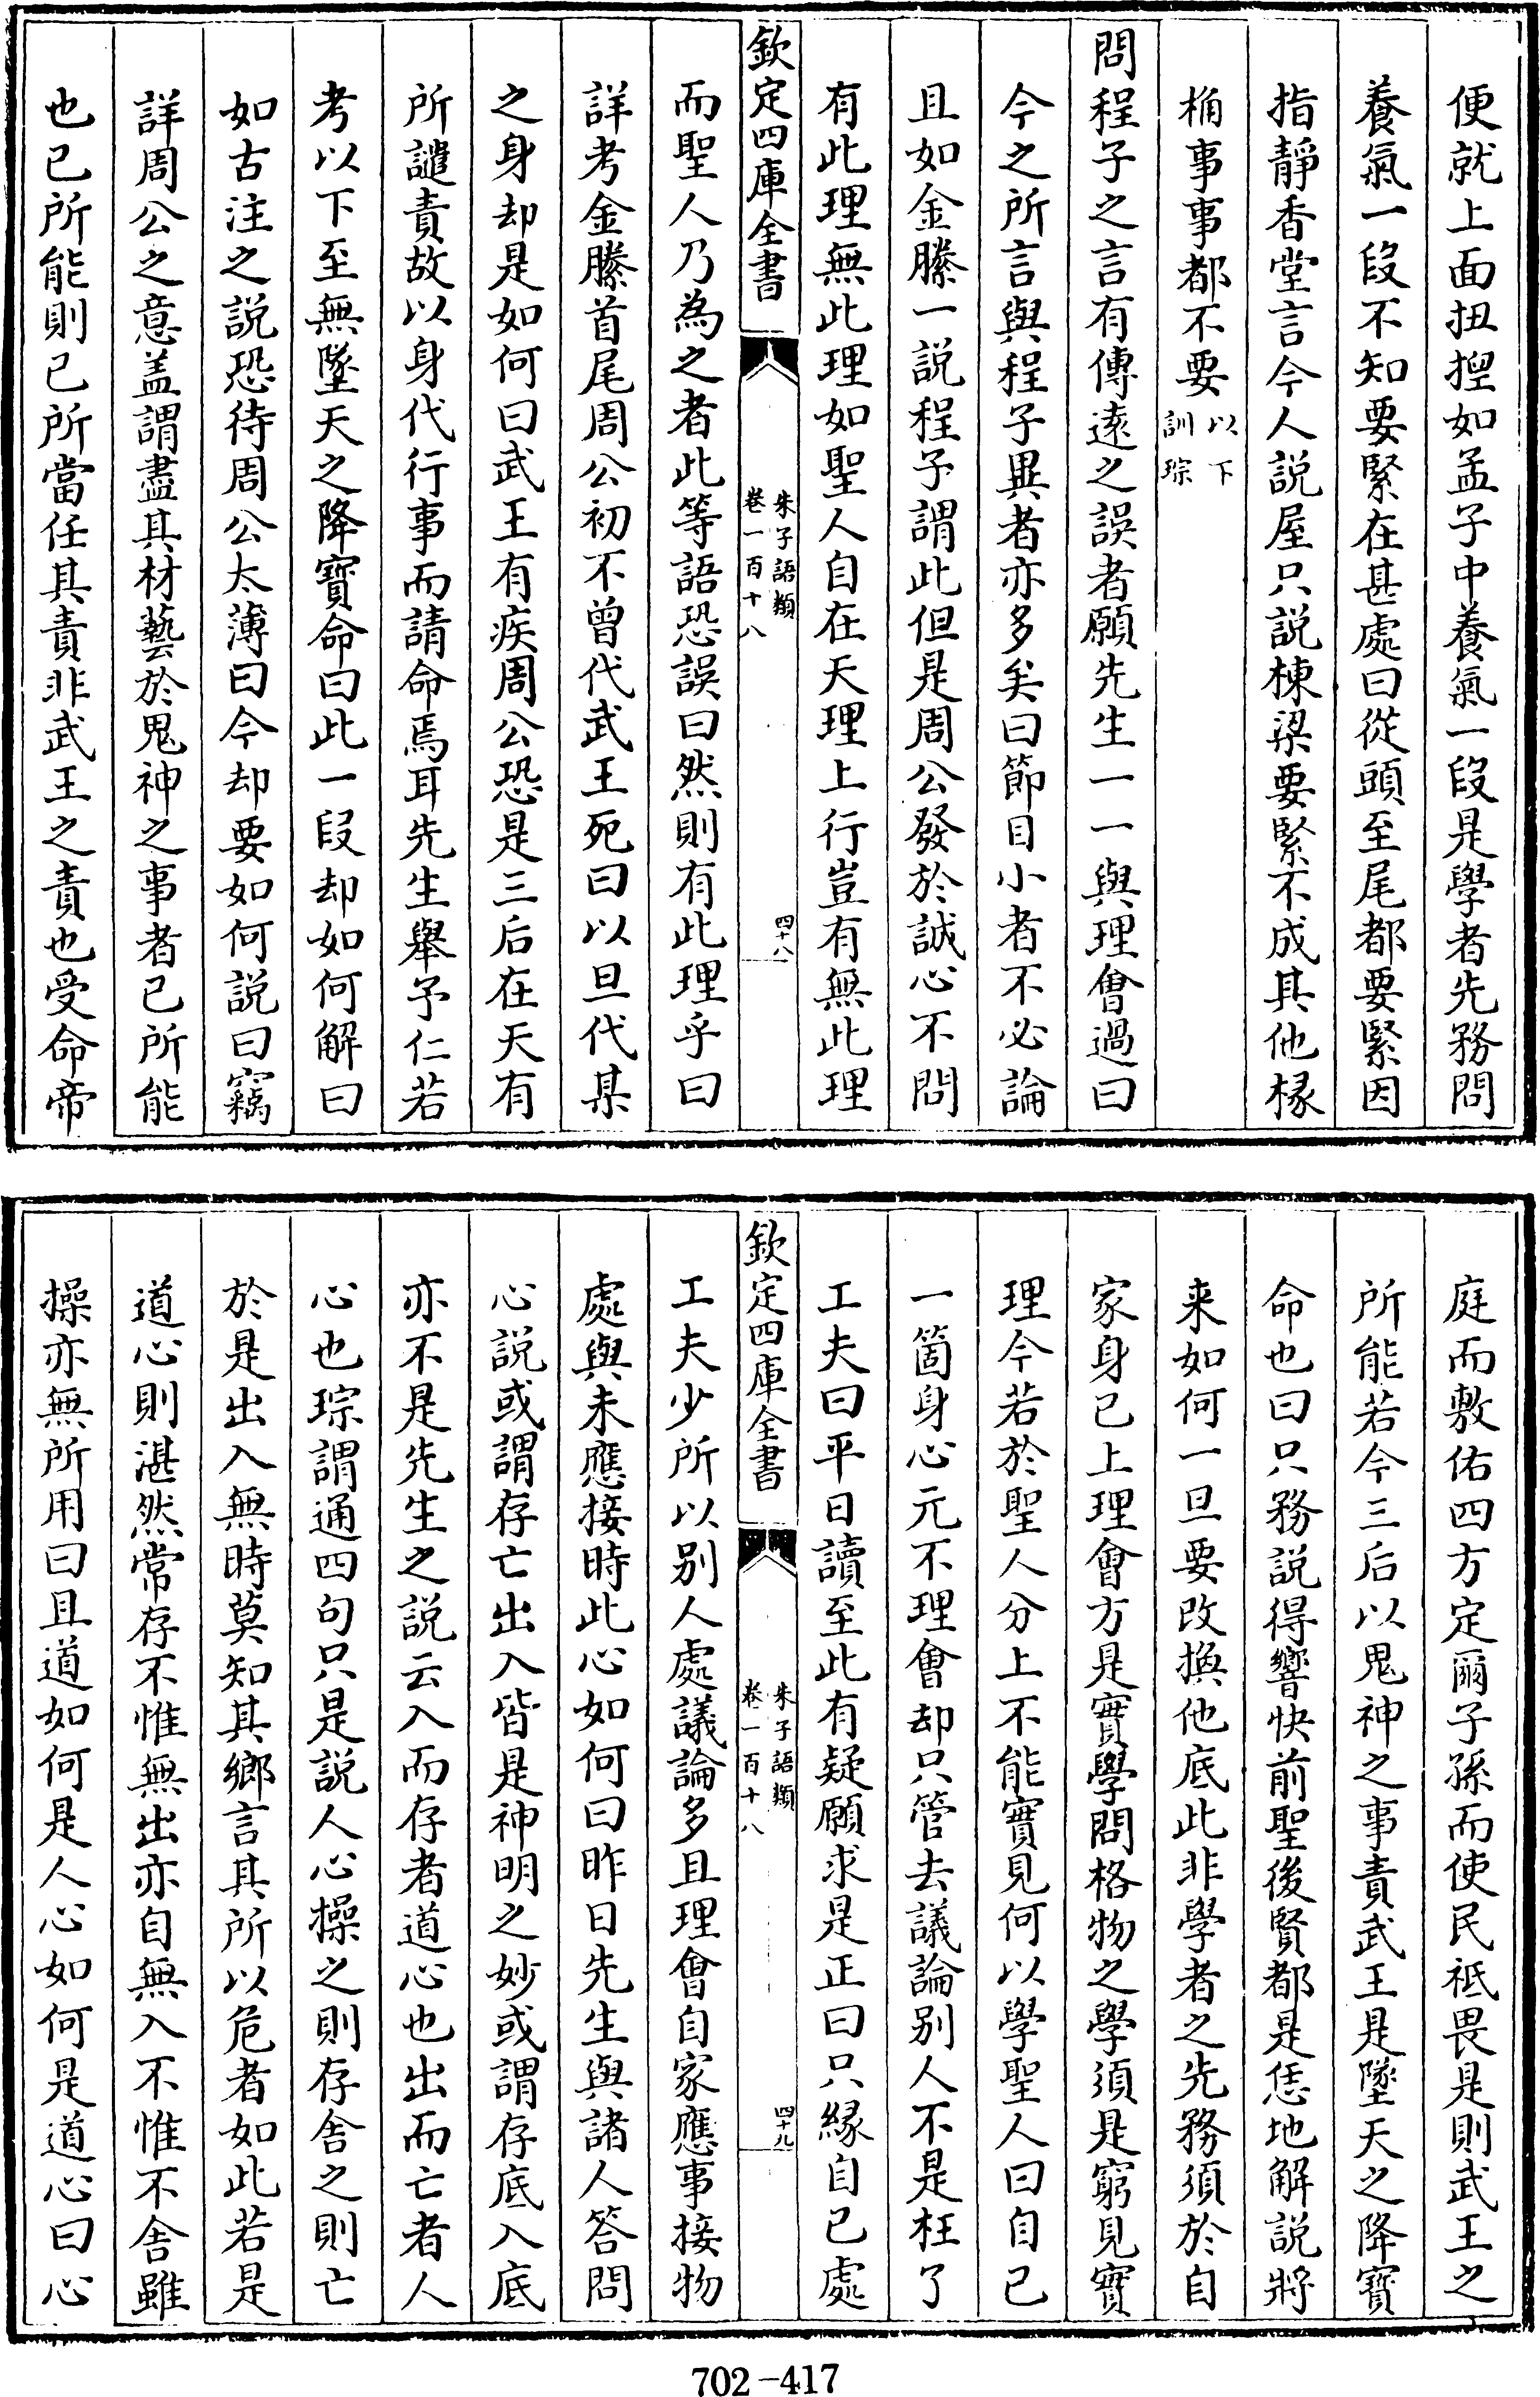 便就上面扭揑如孟子中養氣一段是學者先務問
養氣一段不知要緊在甚處曰從頭至尾都要緊因
指靜香堂言今人説屋只説棟梁要緊不成其他椽
桷事事都不要以下訓琮
問程子之言有傳遠之誤者願先生一一與理會過曰
今之所言與程子異者亦多矣曰節目小者不必論
且如金縢一説程子謂此但是周公發於誠心不問
有此理無此理如聖人自在天理上行豈有無此理
欽定四庫全書
朱子語類
卷一百十八
四十八
而聖人乃為之者此等語恐誤曰然則有此理乎曰
詳考金縢首尾周公初不曾代武王死曰以旦代某
之身却是如何曰武王有疾周公恐是三后在天有
所譴責故以身代行事而請命焉耳先生舉予仁若
考以下至無墜天之降寳命曰此一段却如何解曰
如古注之説恐待周公太薄曰今却要如何説曰竊
詳周公之意盖謂盡其材藝於鬼神之事者已所能
也已所能則已所當任其責非武王之責也受命帝
庭而敷佑四方定爾子孫而使民祗畏是則武王之
所能若今三后以鬼神之事責武王是墜天之降寳
命也曰只務説得響快前聖後賢都是恁地解説將
来如何一旦要改換他底此非學者之先務須於自
家身已上理會方是實學問格物之學須是窮見實
理今若於聖人分上不能實見何以學聖人曰自已
一箇身心元不理會却只管去議論别人不是枉了
工夫曰平日讀至此有疑願求是正曰只緣自已處
欽定四庫全書
朱子語類
卷一百十八
四十九
工夫少所以别人處議論多且理會自家應事接物
處與未應接時此心如何曰昨日先生與諸人答問
心説或謂存亡出入皆是神明之妙或謂存底入底
亦不是先生之説云入而存者道心也出而亡者人
心也琮謂通四句只是説人心操之則存舍之則亡
於是出入無時莫知其鄉言其所以危者如此若是
道心則湛然常存不惟無出亦自無入不惟不舍雖
操亦無所用曰且道如何是人心如何是道心曰心
702-417